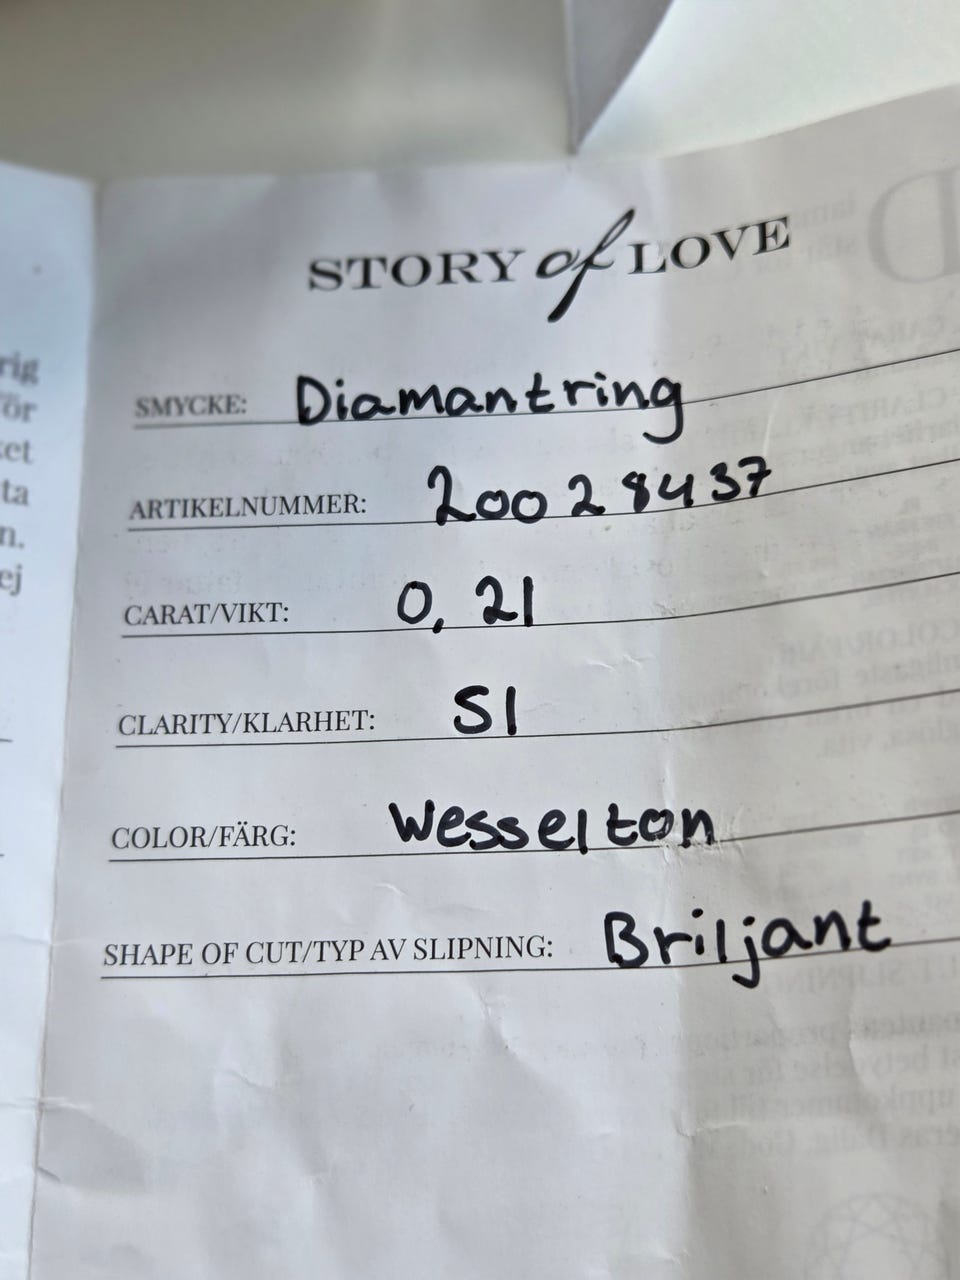 STORY of LOVE
SMYCKE: Diamantring
ARTIKELNUMMER: 20028437
CARAT/VIKT: 0,21
CLARITY/KLARHET: SI
COLOR/FÄRG: Wesselton
SHAPE OF CUT/TYP AV SLIPNING: Briljant
rig
för
ket
ta
n.
ej